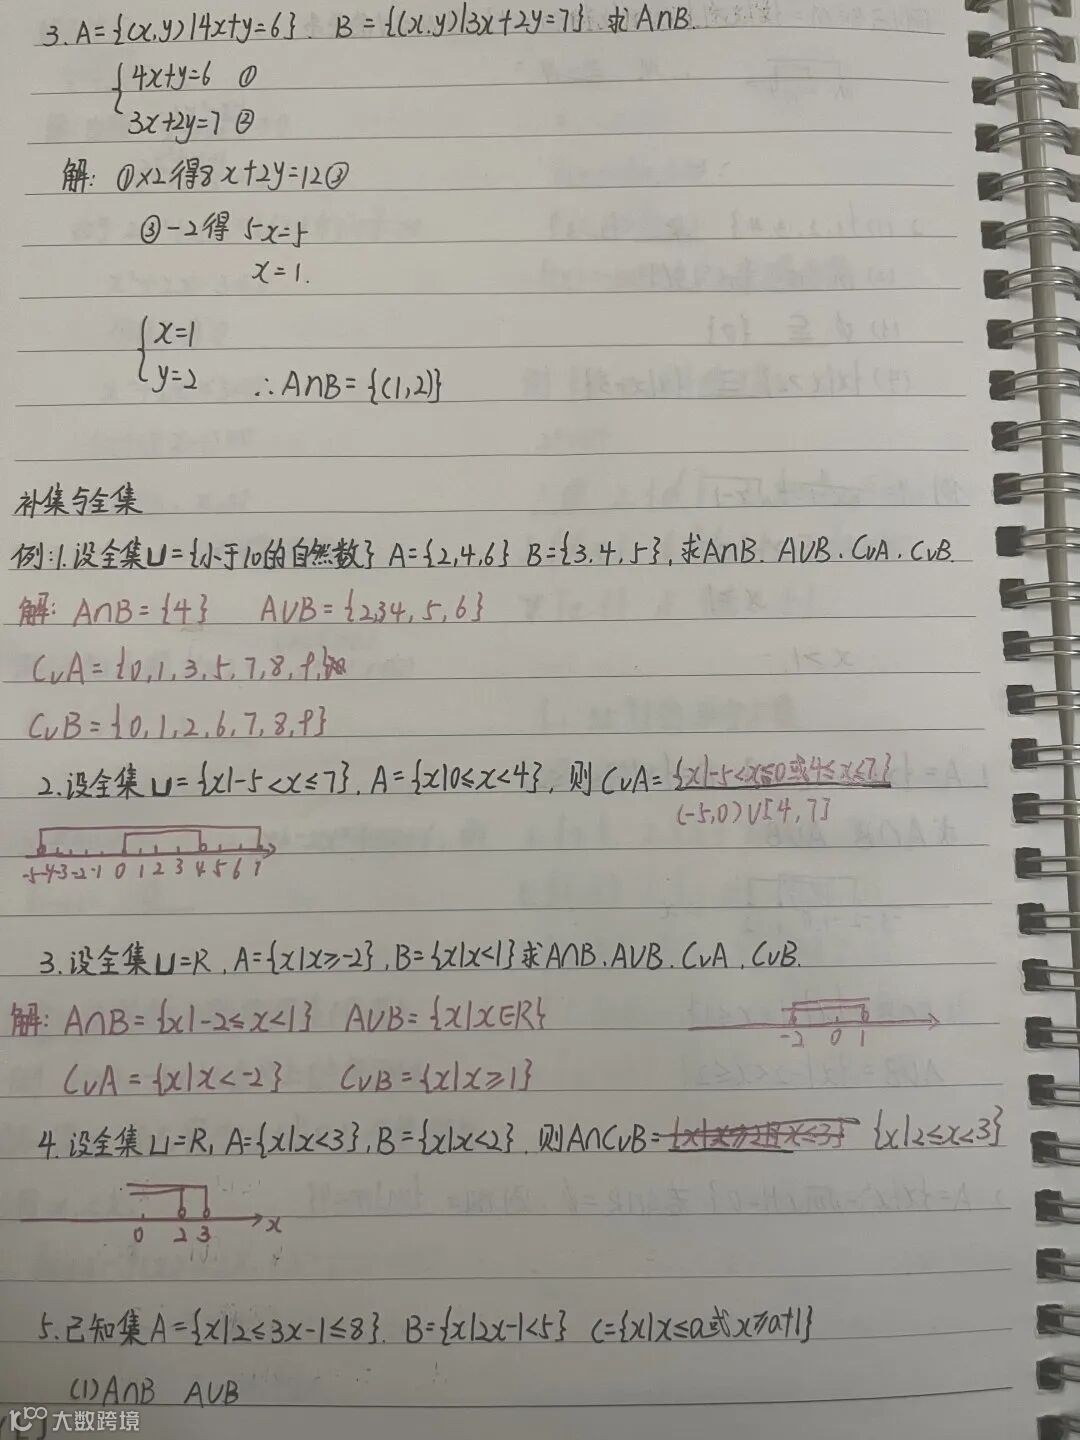 3. A={(x,y)|4x+y=6}. B={(x,y)|3x+2y=7}. 求A∩B.
{4x+y=6 ①
3x+2y=7 ②
解: ①×2得8x+2y=12③
③-2得 5x=5
x=1.
{x=1
y=2 ∴A∩B={(1,2)}
补集与全集
例:1.设全集U={小于10的自然数} A={2,4,6} B={3.4,5},求A∩B. A∪B. CuA. CuB.
解: A∩B={4} A∪B={2,3,4,5,6}
CuA={0,1,3,5,7,8,9}
CuB={0,1,2,6,7,8,9}
2.设全集U={x|-5<x≤7}, A={x|0≤x<4}, 则CuA={x|-5<x<0或4≤x≤7}
(-5,0)∪[4,7]
-5-4-3-2-1 0 1 2 3 4 5 6 7
3.设全集U=R, A={x|x≥-2}, B={x|x<1}求A∩B. A∪B. CuA. CuB.
解: A∩B={x|-2≤x<1} A∪B={x|x∈R}
-2 0 1
CuA={x|x<-2} CuB={x|x≥1}
4.设全集U=R, A={x|x<3}, B={x|x<2}. 则A∩CuB= {x|2≤x<3}
0 2 3 x
5.已知集A={x|2≤3x-1≤8}. B={x|2x-1<5} C={x|x≤a或x≥a+1}
(1)A∩B A∪B
大数跨境